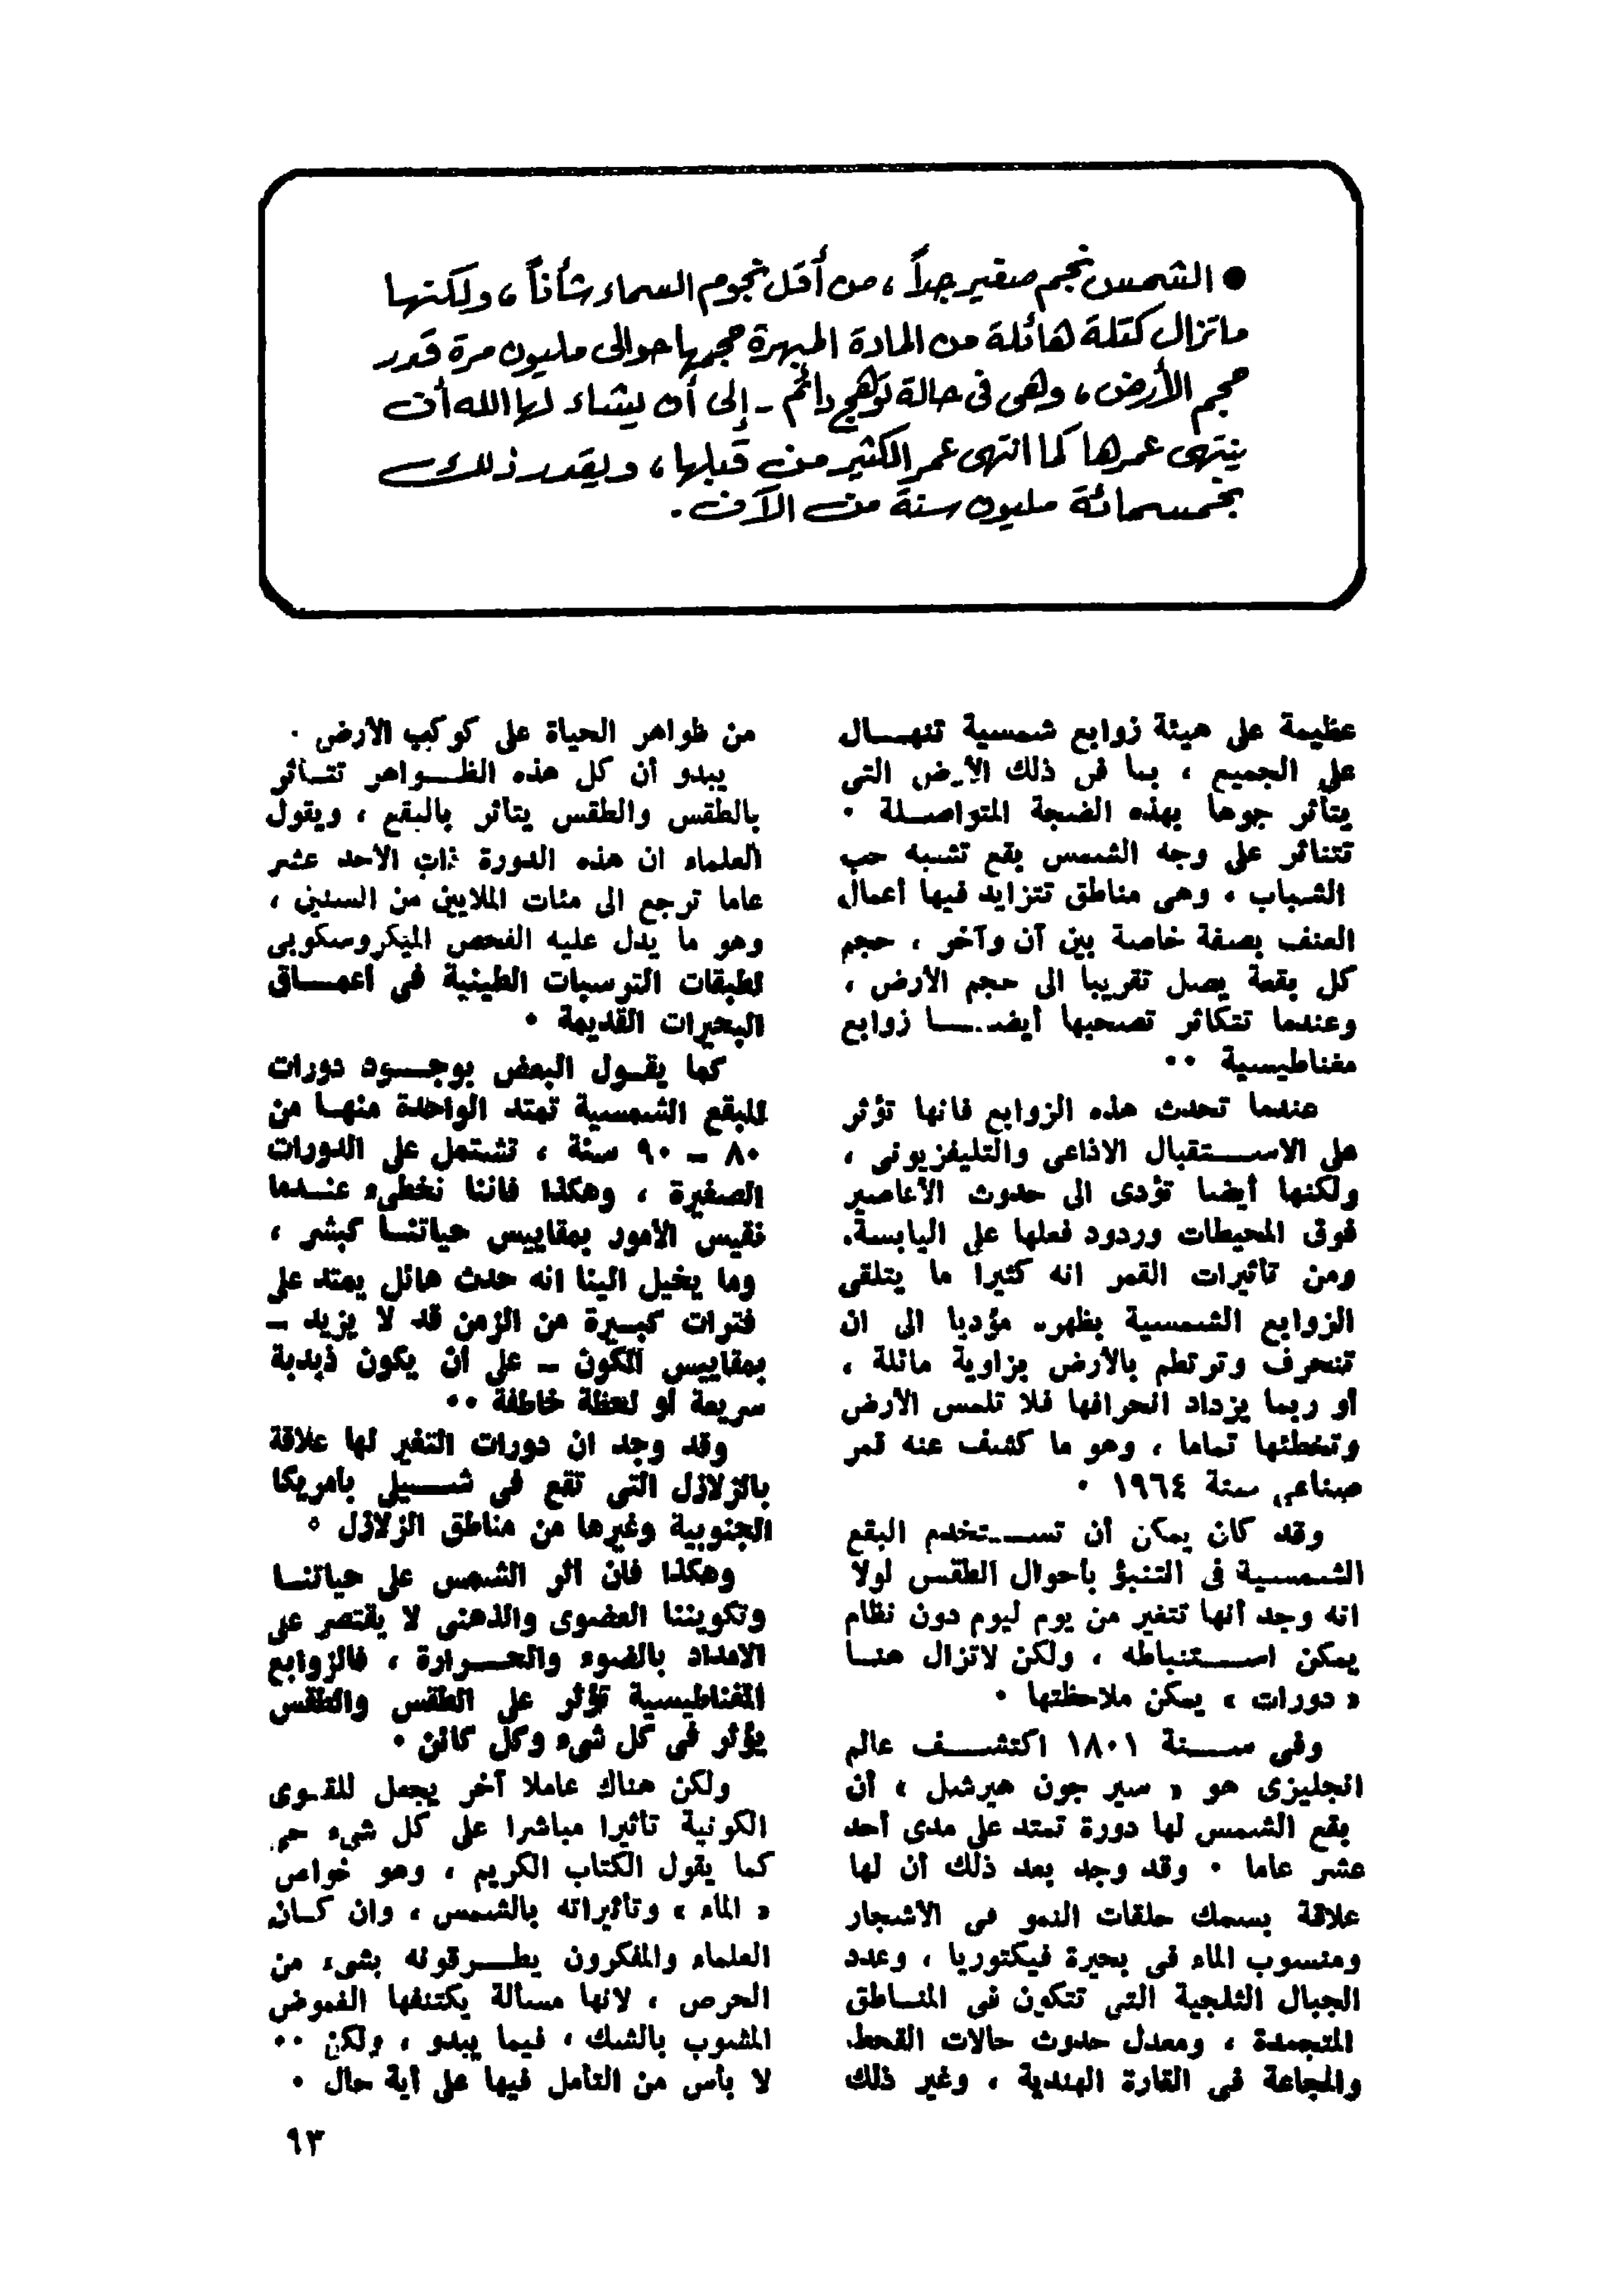 ● الشمس نجم صغير جداً ، من أقل نجوم السماء شأناً ، ولكنها
ماتزال كتلة هائلة من المادة المبهرة حجمها حوالى مليون مرة قدر
حجم الأرض ، وهى فى حالة توهج دائم - إلى أن يشاء لها الله أن
ينتهى عمرها كما انتهى عمر الكثير من قبلها ، ويقدر ذلك
بخمسمائة مليون سنة من الآن .
عظيمة على هيئة زوابع شمسية تنهـــال
على الجميع ، بما فى ذلك الأرض التى
يتأثر جوها بهذه الضجة المتواصـلة ٠
تتناثر على وجه الشمس بقع تشبه حب
الشباب ، وهى مناطق تتزايد فيها أعمال
العنف بصفة خاصة بين آن وآخر ، حجم
كل بقعة يصل تقريبا الى حجم الأرض ،
وعندما تتكاثر تصحبها أيضـــا زوابع
مغناطيسية ٠٠
عندما تحدث هذه الزوابع فانها تؤثر
على الاســـتقبال الاذاعى والتليفزيونى ،
ولكنها أيضا تؤدى الى حدوث الأعاصير
فوق المحيطات وردود فعلها على اليابسة.
ومن تأثيرات القمر انه كثيرا ما يتلقى
الزوابع الشمسية بظهره مؤديا الى ان
تنحرف وترتطم بالأرض بزاوية مائلة ،
أو ربما يزداد انحرافها فلا تلمس الأرض
وتخطئها تماما ، وهو ما كشف عنه قمر
صناعى سنة ١٩٦٤ ٠
وقد كان يمكن أن تســـتخدم البقع
الشمسية فى التنبؤ بأحوال الطقس لولا
انه وجد أنها تتغير من يوم ليوم دون نظام
يمكن اســـتنباطه ، ولكن لاتزال هنـا
« دورات » يمكن ملاحظتها ٠
وفى ســـنة ١٨٠١ اكتشـــف عالم
انجليزى هو « سير جون هيرشل » أن
بقع الشمس لها دورة تمتد على مدى أحد
عشر عاما ٠ وقد وجد بعد ذلك أن لها
علاقة بسمك حلقات النمو فى الأشجار
ومنسوب الماء فى بحيرة فيكتوريا ، وعدد
الجبال الثلجية التى تتكون فى المنـاطق
المتجمدة ، ومعدل حدوث حالات القحط
والمجاعة فى القارة الهندية ، وغير ذلك
من ظواهر الحياة على كوكب الأرض ٠
يبدو أن كل هذه الظـــواهر تتـأثر
بالطقس والطقس يتأثر بالبقع ، ويقول
العلماء ان هذه الدورة ذات الأحد عشر
عاما ترجع الى مئات الملايين من السنين ،
وهو ما يدل عليه الفحص الميكروسكوبى
لطبقات الترسبات الطينية فى أعمـــاق
البحيرات القديمة ٠
كما يقـول البعض بوجـــود دورات
للبقع الشمسية تمتد الواحدة منهـا من
٨٠ ـ ٩٠ سنة ، تشتمل على الدورات
الصغيرة ، وهكذا فاننا نخطىء عنـدما
نقيس الأمور بمقاييس حياتنـا كبشر ،
وما يخيل الينا انه حدث هائل يمتد على
فترات كبـيرة من الزمن قد لا يزيد ـ
بمقاييس الكون ـ على أن يكون ذبذبة
سريعة أو لحظة خاطفة ٠٠
وقد وجد ان دورات التغير لها علاقة
بالزلازل التى تقع فى شـــيلى بأمريكا
الجنوبية وغيرها من مناطق الزلازل ٠
وهكذا فان أثر الشمس على حياتنـا
وتكويننا العضوى والذهنى لا يقتصر على
الامداد بالضوء والحـــرارة ، فالزوابع
المغناطيسية تؤثر على الطقس والطقس
يؤثر فى كل شىء وكل كائن ٠
ولكن هناك عاملا آخر يجعل للقـوى
الكونية تأثيرا مباشرا على كل شىء حى
كما يقول الكتاب الكريم ، وهو خواص
« الماء » وتأثيراته بالشمس ، وان كـان
العلماء والمفكرون يطـــرقونه بشىء من
الحرص ، لانها مسألة يكتنفها الغموض
المشوب بالشك ، فيما يبدو ، ولكن ٠٠
لا بأس من التأمل فيها على أية حال ٠
٩٣